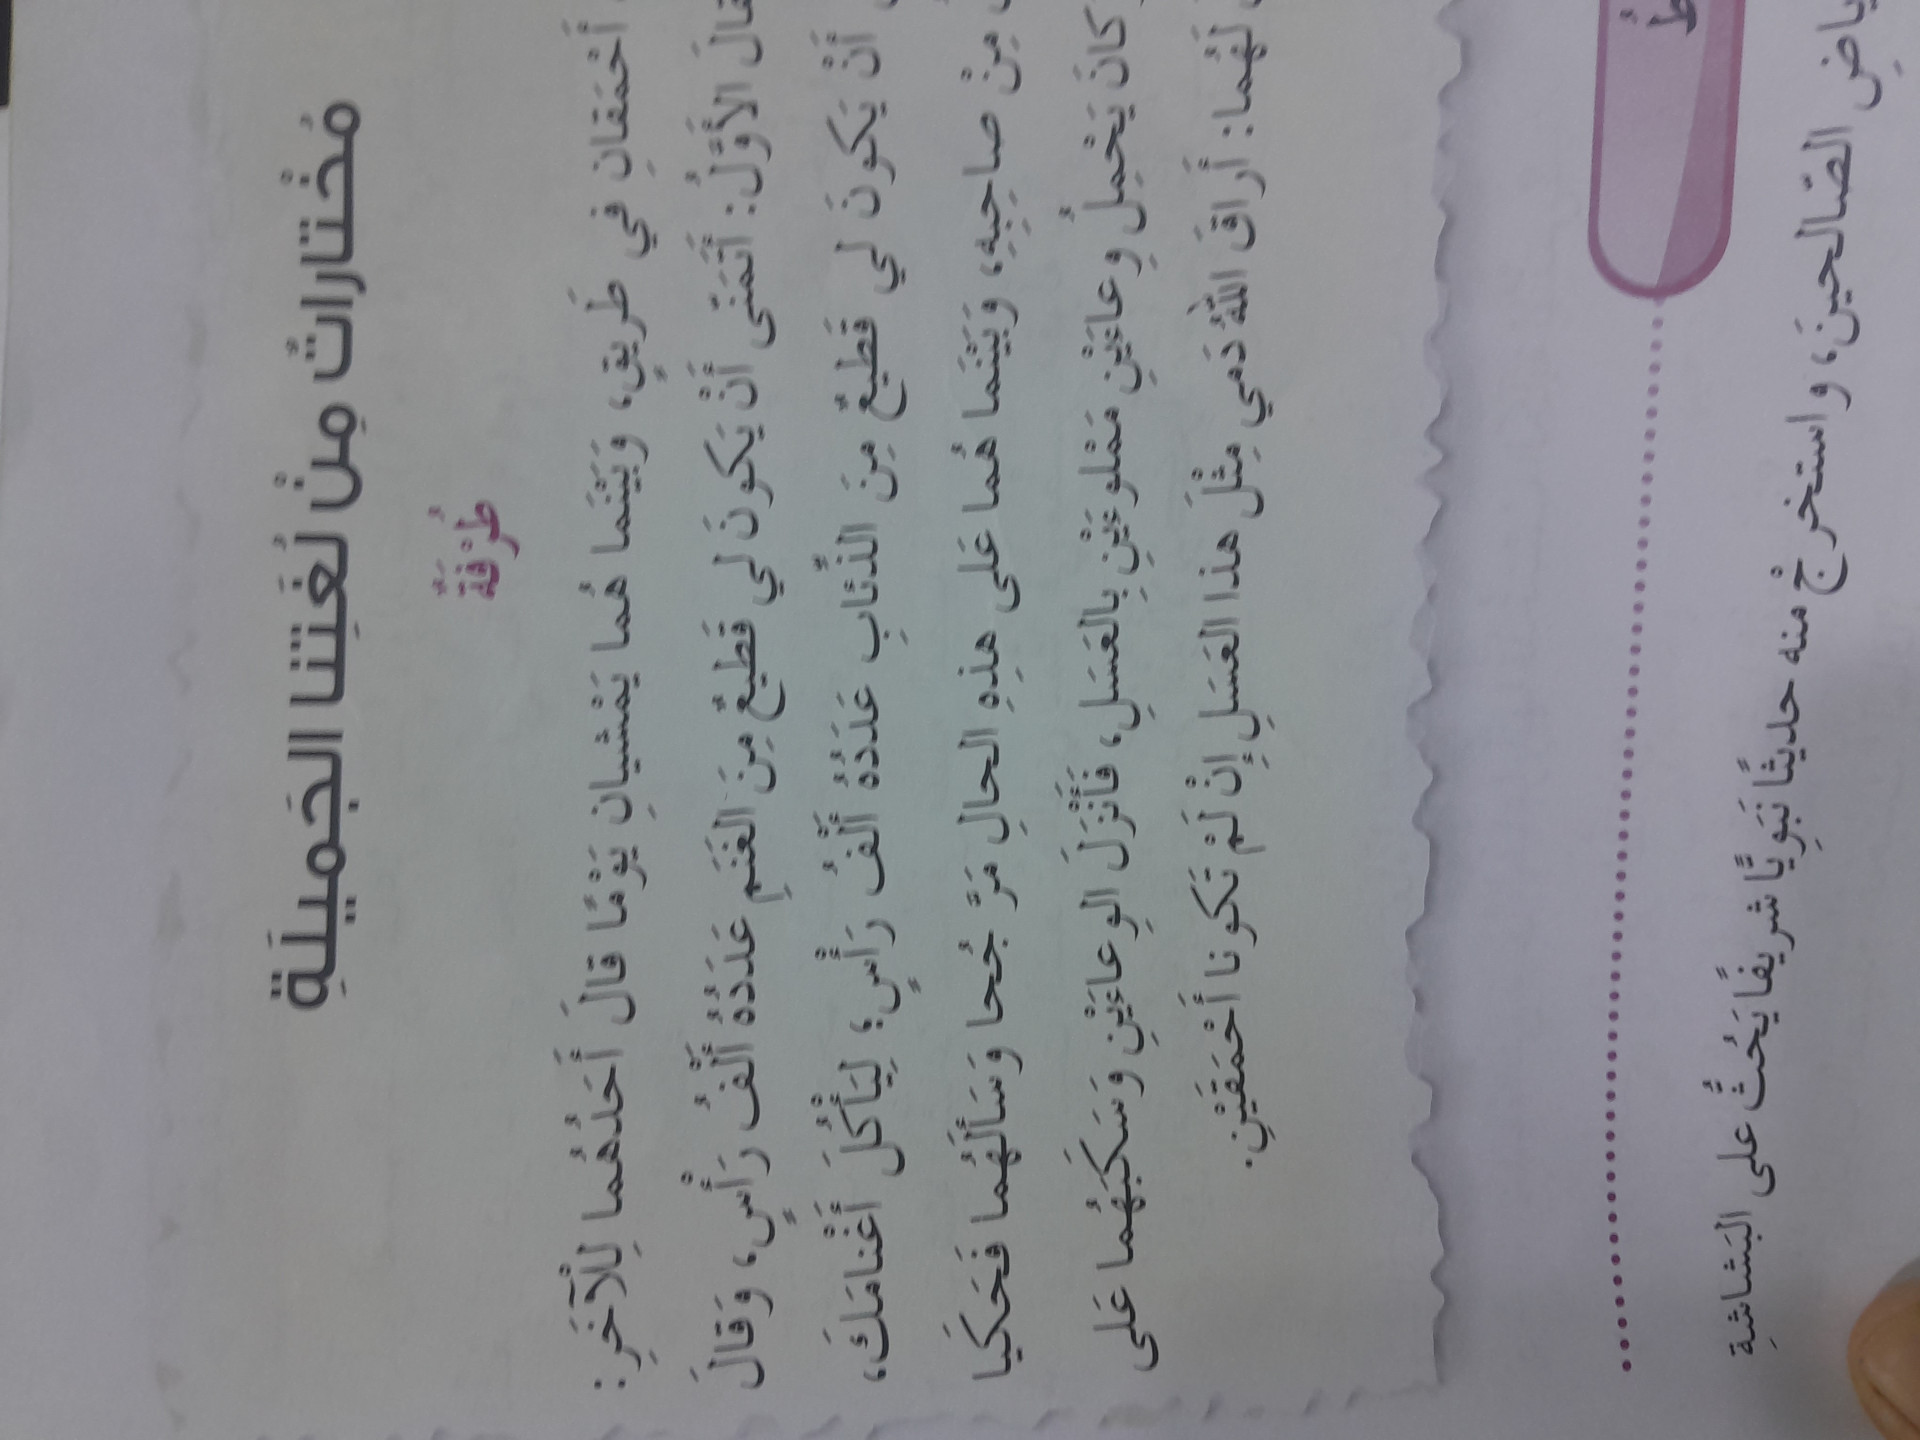 مُخْتاراتٌ مِنْ لُغَتِنا الجَميلَةِ
طُرْفَةٌ
أَحْمَقانِ في طَريقٍ، وَبَيْنَما هُما يَمْشيانِ يَوْمًا قالَ أَحَدُهُما لِلْآخَرِ:
قالَ الأَوَّلُ: أَتَمَنّى أَنْ يَكونَ لي قَطيعٌ مِنَ الغَنَمِ عَدَدُهُ أَلْفُ رَأْسٍ، وَقالَ
أَنْ يَكونَ لي قَطيعٌ مِنَ الذِّئابِ عَدَدُهُ أَلْفُ رَأْسٍ؛ لِيَأْكُلَ أَغْنامَكَ،
مِنْ صاحِبِهِ، وَبَيْنَما هُما عَلى هذِهِ الحالِ مَرَّ جُحا وَسَأَلَهُما فَحَكَيا
كانَ يَحْمِلُ وِعاءَيْنِ مَمْلوءَيْنِ بِالعَسَلِ، فَأَنْزَلَ الوِعاءَيْنِ وَسَكَبَهُما عَلى
لَهُما: أَراقَ اللهُ دَمي مِثْلَ هذا العَسَلِ إِنْ لَمْ تَكونا أَحْمَقَيْنِ.
الصّالحينَ، واستخرِجْ منه حديثًا نَبَوِيًّا شريفًا يَحُثُّ على البَشاشةِ